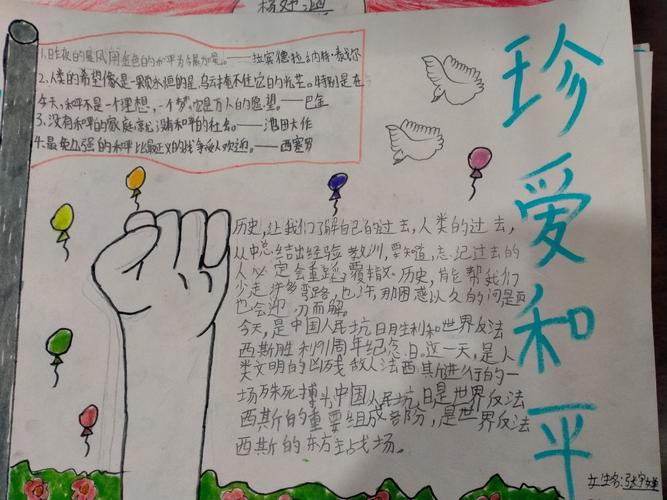 1.昨夜的暴风用金色的和平为绿加冕。——拉宾德拉纳特·泰戈尔
2.人类的希望像是一颗永恒的星,乌云掩不住它的光芒。特别是在
今天,和平不是一个理想,一个梦,它是万人的愿望。——巴金
3.没有和平的家庭,就没有和平的社会。——池田大作
4.最免强的和平比最正义的战争受人欢迎。——西塞罗
珍爱和平
历史,让我们了解自己的过去,人类的过去,
从中总结出经验教训,要知道,忘记过去的
人必定会重蹈覆辙。历史,能帮我们
少走许多弯路,也许,那困惑认久的问是页
也会迎刃而解。
今天,是中国人民抗日月生利和世界反法
西斯胜利91周年纪念日。这一天,是人
类文明的凶残敌人法西斯进行的一
场殊死搏头中国人民抗日是世界反法
西斯的重要组成部份,是世界反法
西斯的东方主战场。